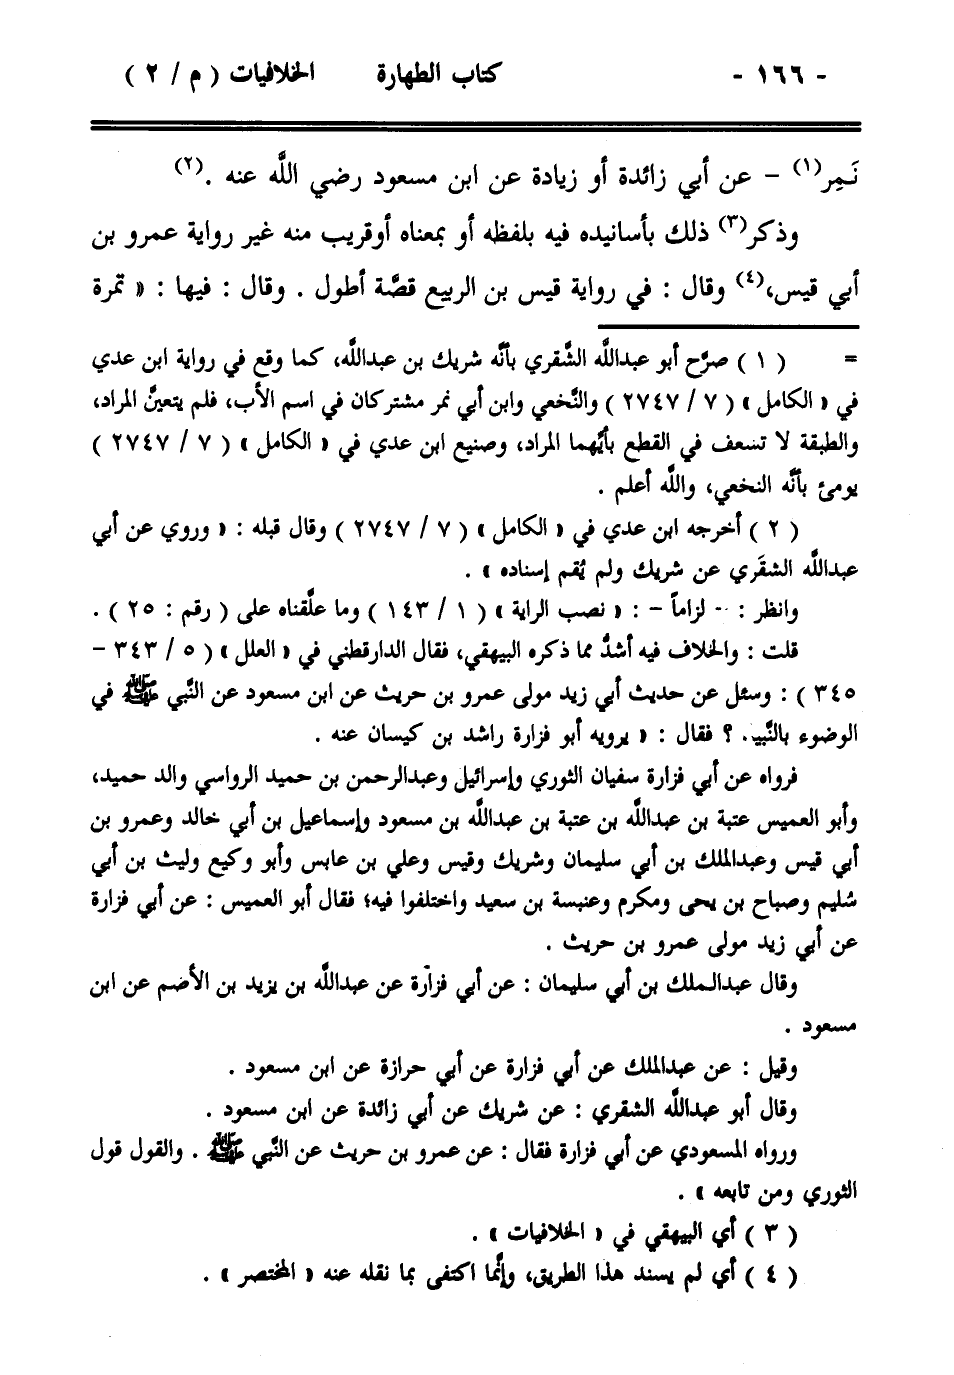 - ١٦٦ - كتاب الطهارة الخلافيات ( م / ٢ )
نَمِر(١) - عن أبي زائدة أو زيادة عن ابن مسعود رضي اللَّه عنه .(٢)
وذكر(٣) ذلك بأسانيده فيه بلفظه أو بمعناه أوقريب منه غير رواية عمرو بن
أبي قيس،(٤) وقال : في رواية قيس بن الربيع قصَّة أطول . وقال : فيها : « تمرة
= ( ١ ) صرَّح أبو عبداللَّه الشَّقري بأنَّه شريك بن عبداللَّه، كما وقع في رواية ابن عدي
في « الكامل » ( ٧ / ٢٧٤٧ ) والنَّخعي وابن أبي نمر مشتركان في اسم الأب، فلم يتعينَّ المراد،
والطبقة لا تسعف في القطع بأيُّهما المراد، وصنيع ابن عدي في « الكامل » ( ٧ / ٢٧٤٧ )
يومئ بأنَّه النخعي، واللَّه أعلم .
( ٢ ) أخرجه ابن عدي في « الكامل » ( ٧ / ٢٧٤٧ ) وقال قبله : « وروي عن أبي
عبداللَّه الشقَري عن شريك ولم يُقم إسناده » .
وانظر : - لزاماً - : « نصب الراية » ( ١ / ١٤٣ ) وما علَّقناه على ( رقم : ٢٥ ) .
قلت : والخلاف فيه أشدُّ مما ذكره البيهقي، فقال الدارقطني في « العلل » ( ٥ / ٣٤٣ -
٣٤٥ ) : وسئل عن حديث أبي زيد مولى عمرو بن حريث عن ابن مسعود عن النَّبي ﷺ في
الوضوء بالنَّبيذ. ؟ فقال : « يرويه أبو فزارة راشد بن كيسان عنه .
فرواه عن أبي فزارة سفيان الثوري وإسرائيل وعبدالرحمن بن حميد الرواسي والد حميد،
وأبو العميس عتبة بن عبداللَّه بن عتبة بن عبداللَّه بن مسعود وإسماعيل بن أبي خالد وعمرو بن
أبي قيس وعبدالملك بن أبي سليمان وشريك وقيس وعلي بن عابس وأبو وكيع وليث بن أبي
سُليم وصباح بن يحى ومكرم وعنبسة بن سعيد واختلفوا فيه؛ فقال أبو العميس : عن أبي فزارة
عن أبي زيد مولى عمرو بن حريث .
وقال عبدالملك بن أبي سليمان : عن أبي فزارة عن عبداللَّه بن يزيد بن الأضم عن ابن
مسعود .
وقيل : عن عبدالملك عن أبي فزارة عن أبي حرازة عن ابن مسعود .
وقال أبو عبداللَّه الشقري : عن شريك عن أبي زائدة عن ابن مسعود .
ورواه المسعودي عن أبي فزارة فقال : عن عمرو بن حريث عن النَّبي ﷺ . والقول قول
الثوري ومن تابعه » .
( ٣ ) أي البيهقي في « الخلافيات » .
( ٤ ) أي لم يسند هذا الطريق، وإنَّما اكتفى بما نقله عنه « المختصر » .